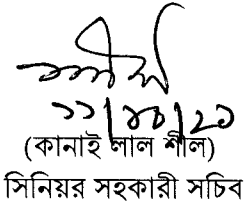 ১১/১০/২১
(কানাই লাল শীল)
সিনিয়র সহকারী সচিব